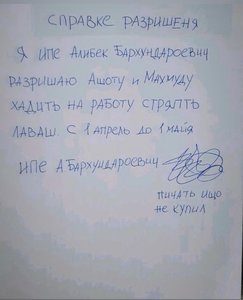 СПРАВКЕ РАЗРИШЕНЯ
Я ИПЕ АЛИБЕК БАРХУНДАРОЕВИЧ
РАЗРИШАЮ АШОТУ И МАХМУДУ
ХАДИТЬ НА РАБОТУ СТРЯПТЬ
ЛАВАШ. С 1 АПРЕЛЬ ДО 1 МАЙЯ
ИПЕ А БАРХУНДАРОЕВИЧ
ПИЧАТЬ ИЩО
НЕ КУПИЛ